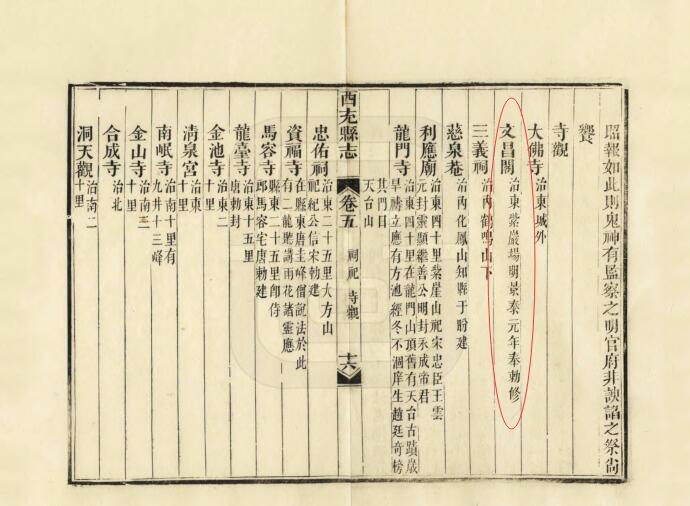 昭報如此則鬼神有監察之明官府非諛諂之祭尙
饗
寺觀
大佛寺 治東城外
文昌閣 治東紫巖場明景泰元年奉勅修
三義祠 治內鶴鳴山下
慈泉菴 治內化鳳山知縣于盼建
利應廟 治東四十里紫崖山祀宋忠臣王雲
元封靈顯繼善公明封永成帝君
龍門寺 治東四十里在龍門山頂舊有天台古蹟歲
旱禱立應有方池經冬不涸庠生趙廷奇榜
其門曰
天台山
西充縣志
卷五
祠祀 寺觀
十六
忠佑祠 治東二十五里大方山
祀紀公信宋勅建
資福寺 在縣東唐圭峰僧說法於此
有二龍聽講雨花諸靈應
馬容寺 縣東二十五里卽侍
郎馬容宅唐勅建
龍臺寺 治東十五里
唐勅封
金池寺 治東二
十里
清泉宮 治東
十里
南岷寺 治南十里有
九井十三峰
金山寺 治南三
十里
合成寺 治北
洞天觀 治南二
十里